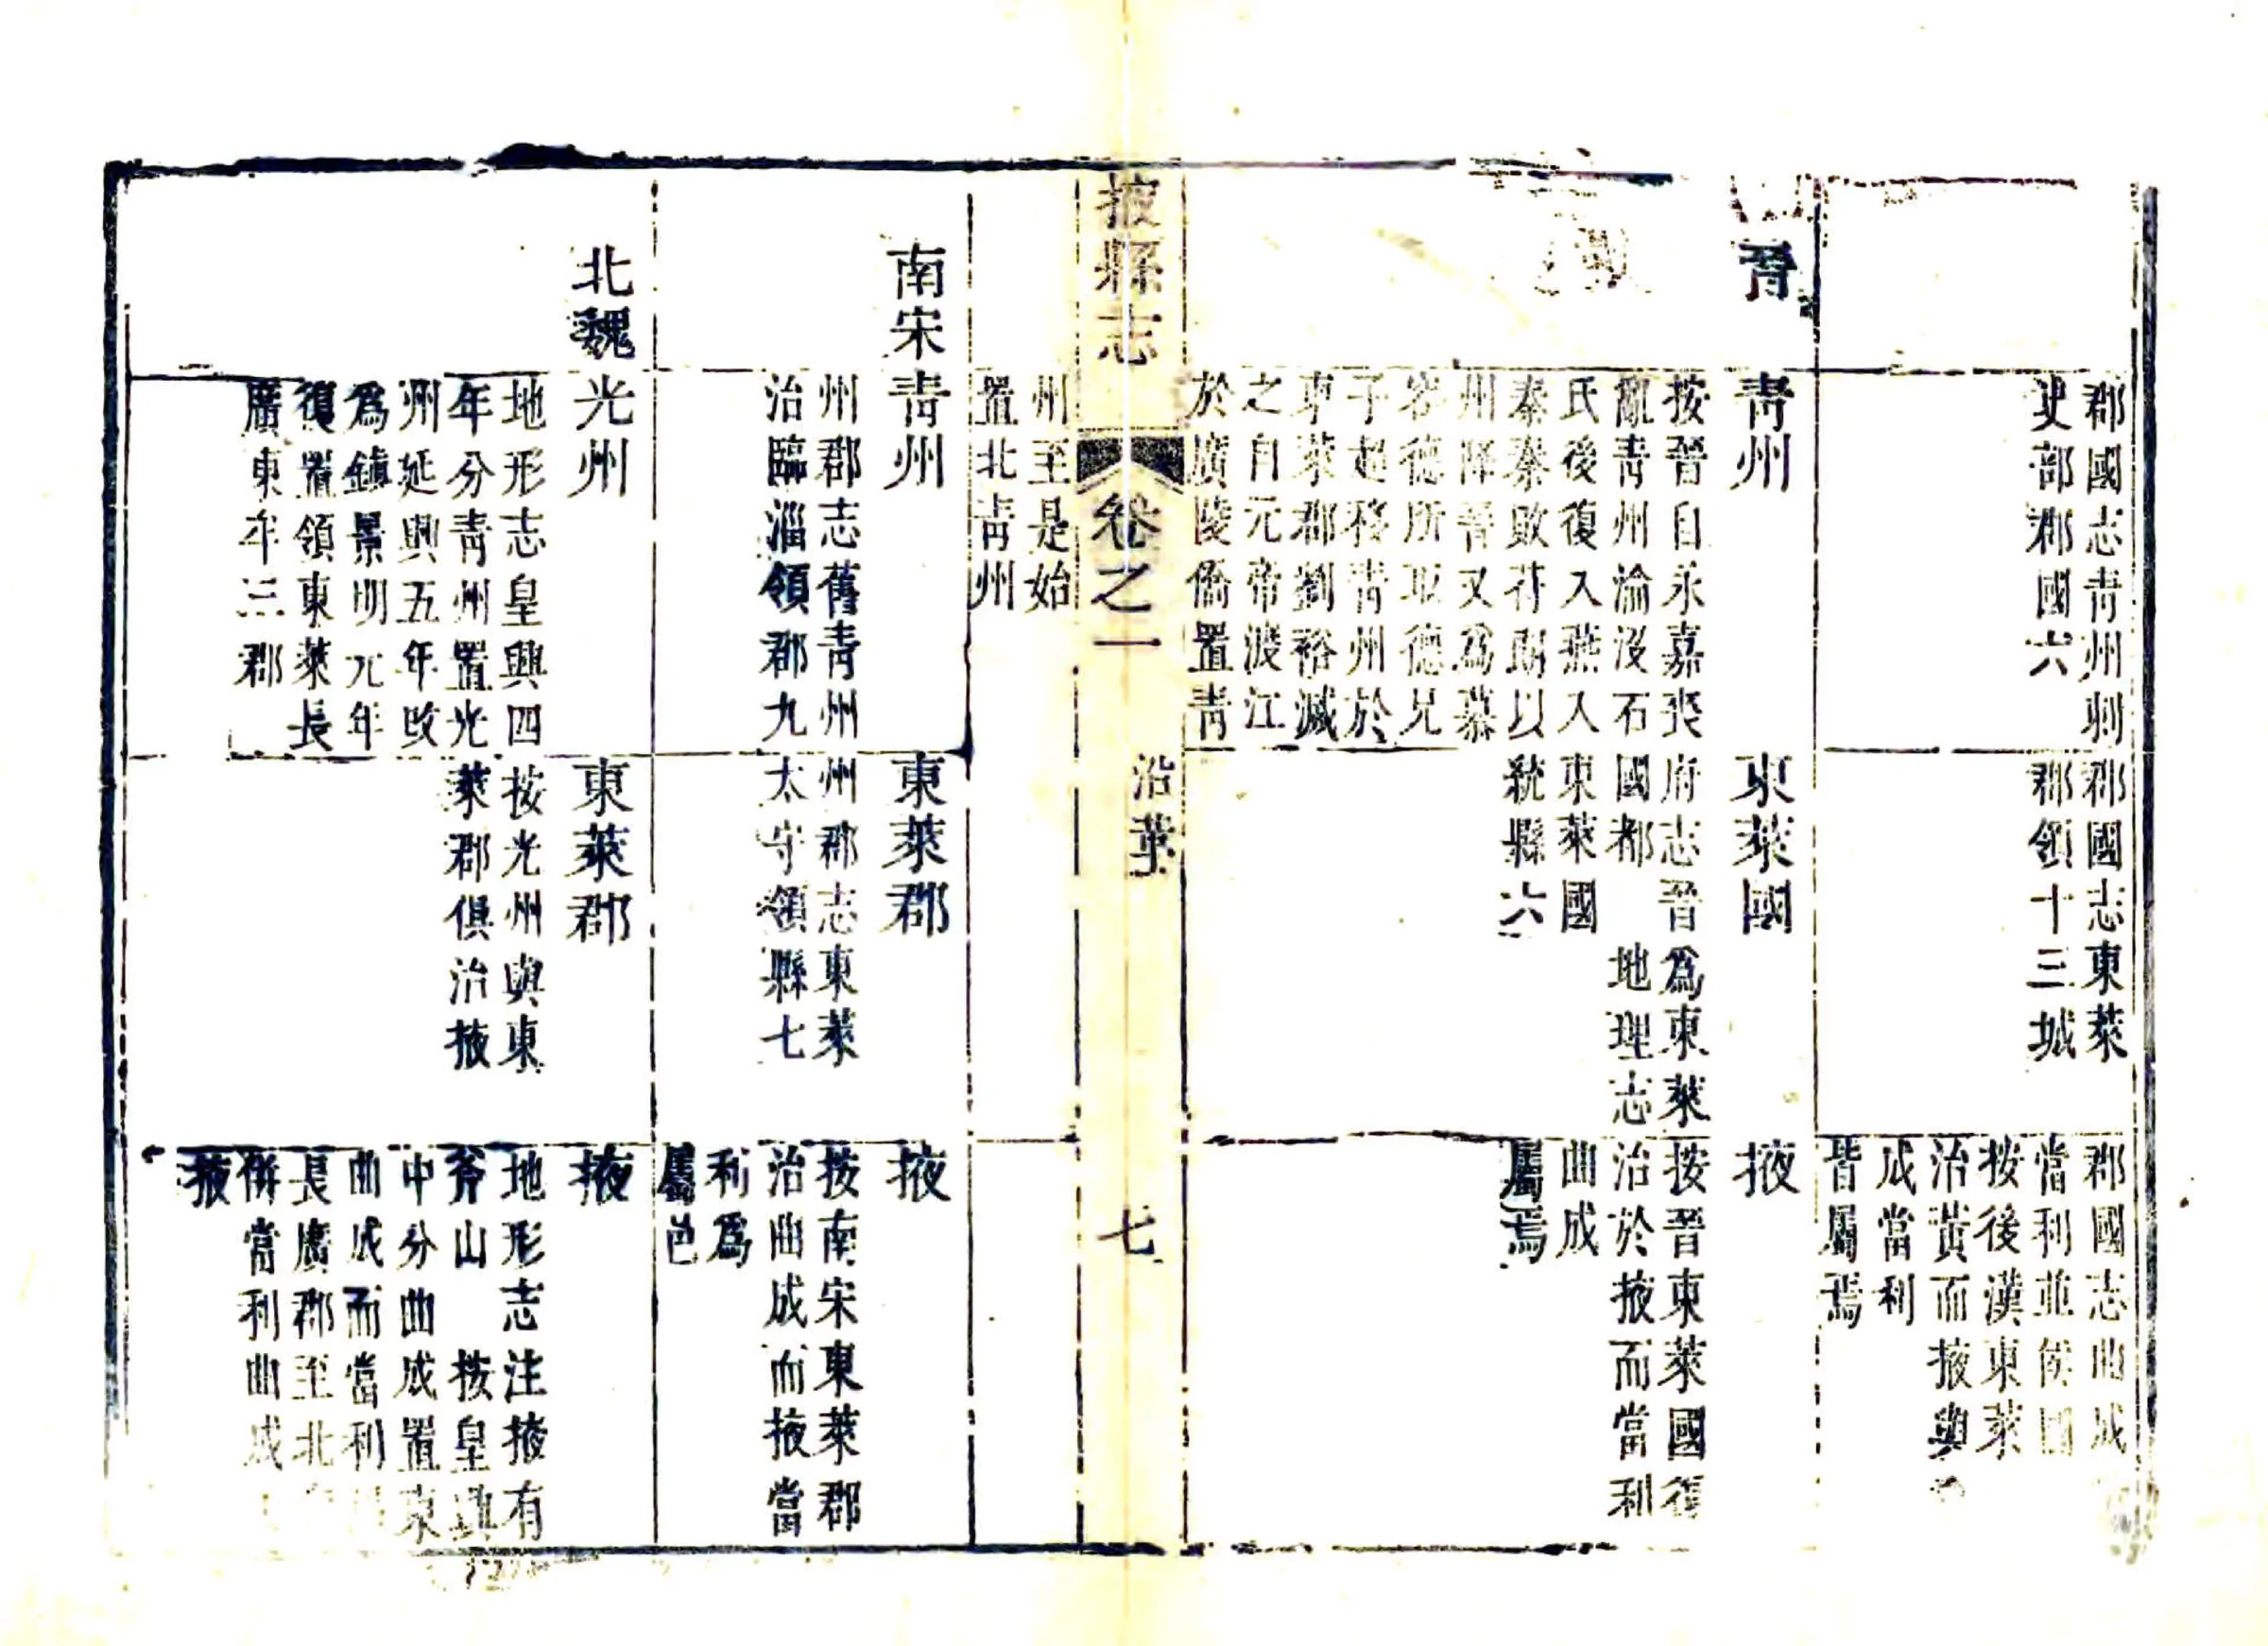 郡國志青州刺
史部郡國六
郡國志東萊
郡領十三城
郡國志曲成
當利並侯國
按後漢東萊
治黃而掖與
成當利
皆屬焉
晉
青州
按晉自永嘉喪
亂青州淪沒石
氏後復入燕入
秦秦敗苻朗以
州降晉又為慕
容德所取德兄
子超移青州於
東萊郡劉裕滅
之自元帝渡江
於廣陵僑置青
東萊國
府志晉為東萊
國都　地理志
東萊國
統縣六
掖
按晉東萊國復
治於掖而當利
曲成
屬焉
掖縣志
卷之一
沿革
七
州至是始
置北青州
南宋
青州
州郡志舊青州
治臨淄領郡九
東萊郡
州郡志東萊
太守領縣七
掖
按南宋東萊郡
治曲成而掖當
利為
屬邑
北魏
光州
地形志皇興四
年分青州置光
州延興五年改
為鎮景明元年
復置領東萊長
廣東牟三郡
東萊郡
按光州與東
萊郡俱治掖
掖
地形志注掖有
斧山　按皇興
中分曲成置東
曲成而當利
長廣郡至北
併當利曲成
掖